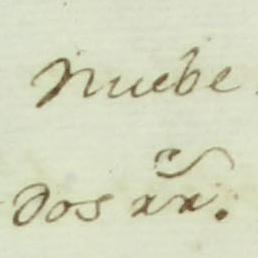 Nuebe
Dos xx.